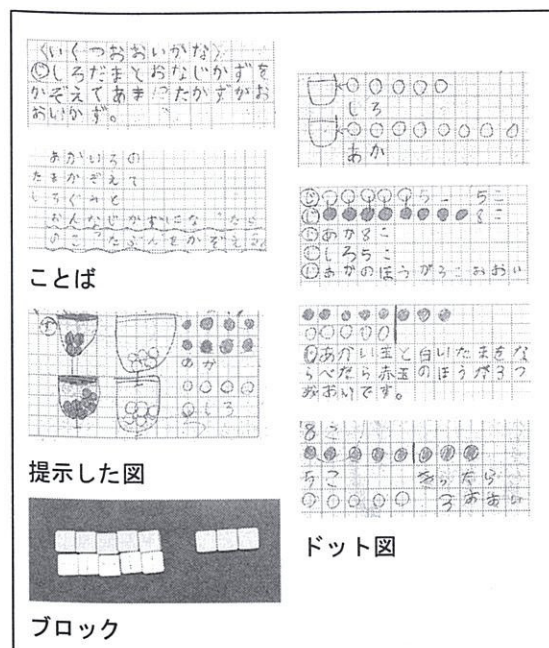 〈いくつおおいかな〉
しろだまとおなじかずを
かぞえてあま たかずがお
おいかず。
あかいろの
たまかぞえて
しろぐみと
おんなじかずにな ったら
のこ ったぶんをかぞえる
ことば
あか
しろ
提示した図
ブロック
しろ
あか
5 5こ
8こ
あか8こ
しろ5こ
あかのほうが3こおおい
あかい玉と白いたまをな
らべたら赤玉のほうが3つ
おおいです。
8こ
5こ きったら
3おおい
ドット図